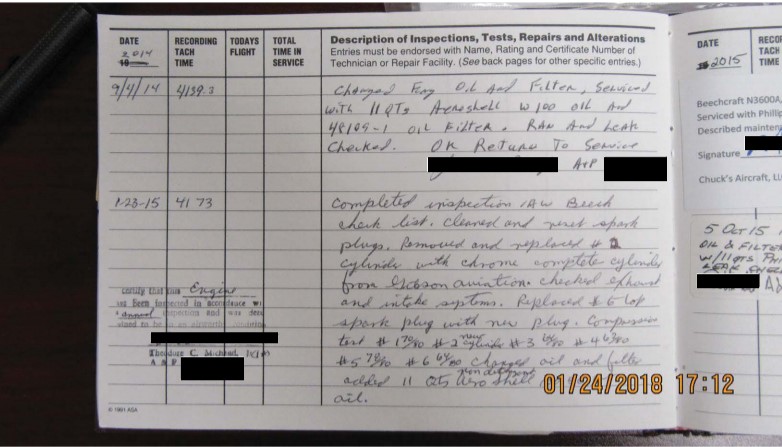 DATE
2014
RECORDING
TACH
TIME
TODAYS
FLIGHT
TOTAL
TIME IN
SERVICE
Description of Inspections, Tests, Repairs and Alterations
Entries must be endorsed with Name, Rating and Certificate Number of
Technician or Repair Facility. (See back pages for other specific entries.)
9/4/14 4139.3
Changed Eng Oil And Filter, Serviced
with 11 QTs Aeroshell W100 Oil And
48109-1 OIL Filter. RAN And Leak
Checked. OK Return To Service
A+P
1-23-15 4173
Completed inspection IAW Beech
check list. Cleaned and reset spark
plugs. Removed and replaced # 2
cylinder with chrome complete cylinder
from Gibson aviation. checked exhaust
and intake systems. Replaced #6 top
spark plug with new plug. Compression
test # 1 70/80 # 2 new cylinder # 3 # 4
# 5 70/80 # 6 64/80 Changed oil and filter
added 11 Qts Aero shell
oil.
certify that this Engine
has been inspected in accordance
annual inspection and was
Theodore C.
A & P
© 1981 ASA
DATE
2015
RECO
TACH
TIME
Beechcraft N3600A,
Serviced with Phillip
Described mainten
Signature
Chuck's Aircraft, LL
5 OCT 15
OIL & FILTER
W/ 11 QTS
LEAK
01/24/2018 17:12